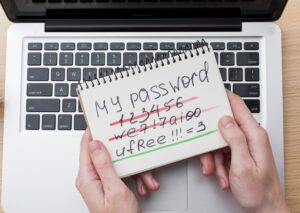 MY PASSWORD
123456
we717a100
ufRee!!!=3